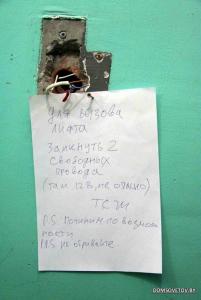 Для вызова
лифта
замкнуть 2
свободных
провода
(там 12 В, не опасно)
ТСЖ
P.S. починим по возмож
ности
P.P.S. не обрывайте
DOMSOVETOV.BY